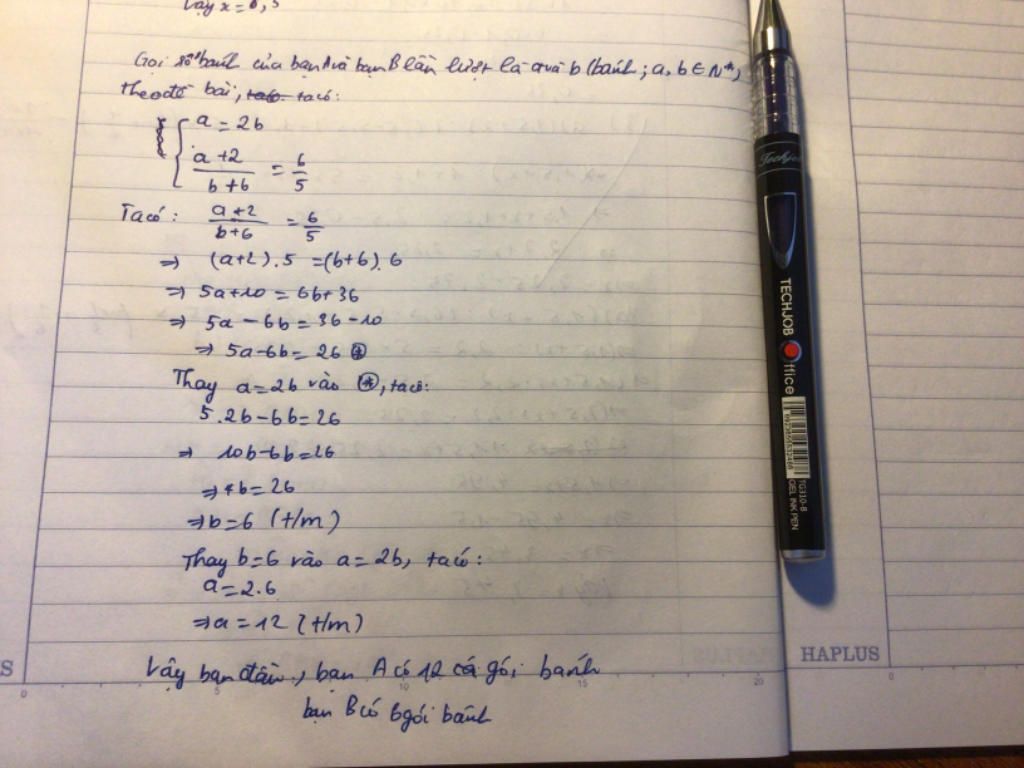 Vậy x = 0,5
Gọi số bánh của bạn A và bạn B lần lượt là a và b (bánh; a, b ∈ N*)
theo đề bài, ta có:
a = 2b
a+2 / b+6 = 6/5
Ta có: a+2 / b+6 = 6/5
⇒ (a+2).5 = (b+6).6
⇒ 5a+10 = 6b+36
⇒ 5a - 6b = 36-10
⇒ 5a-6b = 26 (*)
Thay a=2b vào (*), ta có:
5.2b-6b=26
⇒ 10b-6b=26
⇒ 4b=26
⇒ b=6 (t/m)
Thay b=6 vào a=2b, ta có:
a=2.6
⇒ a=12 (t/m)
Vậy ban đầu, bạn A có 12 cá gói bánh
bạn B có 6 gói bánh
Techjob
TECHJOB Office
6923655532466
TG310-B
GEL INK PEN
S
HAPLUS
0 5 10 15 20 0